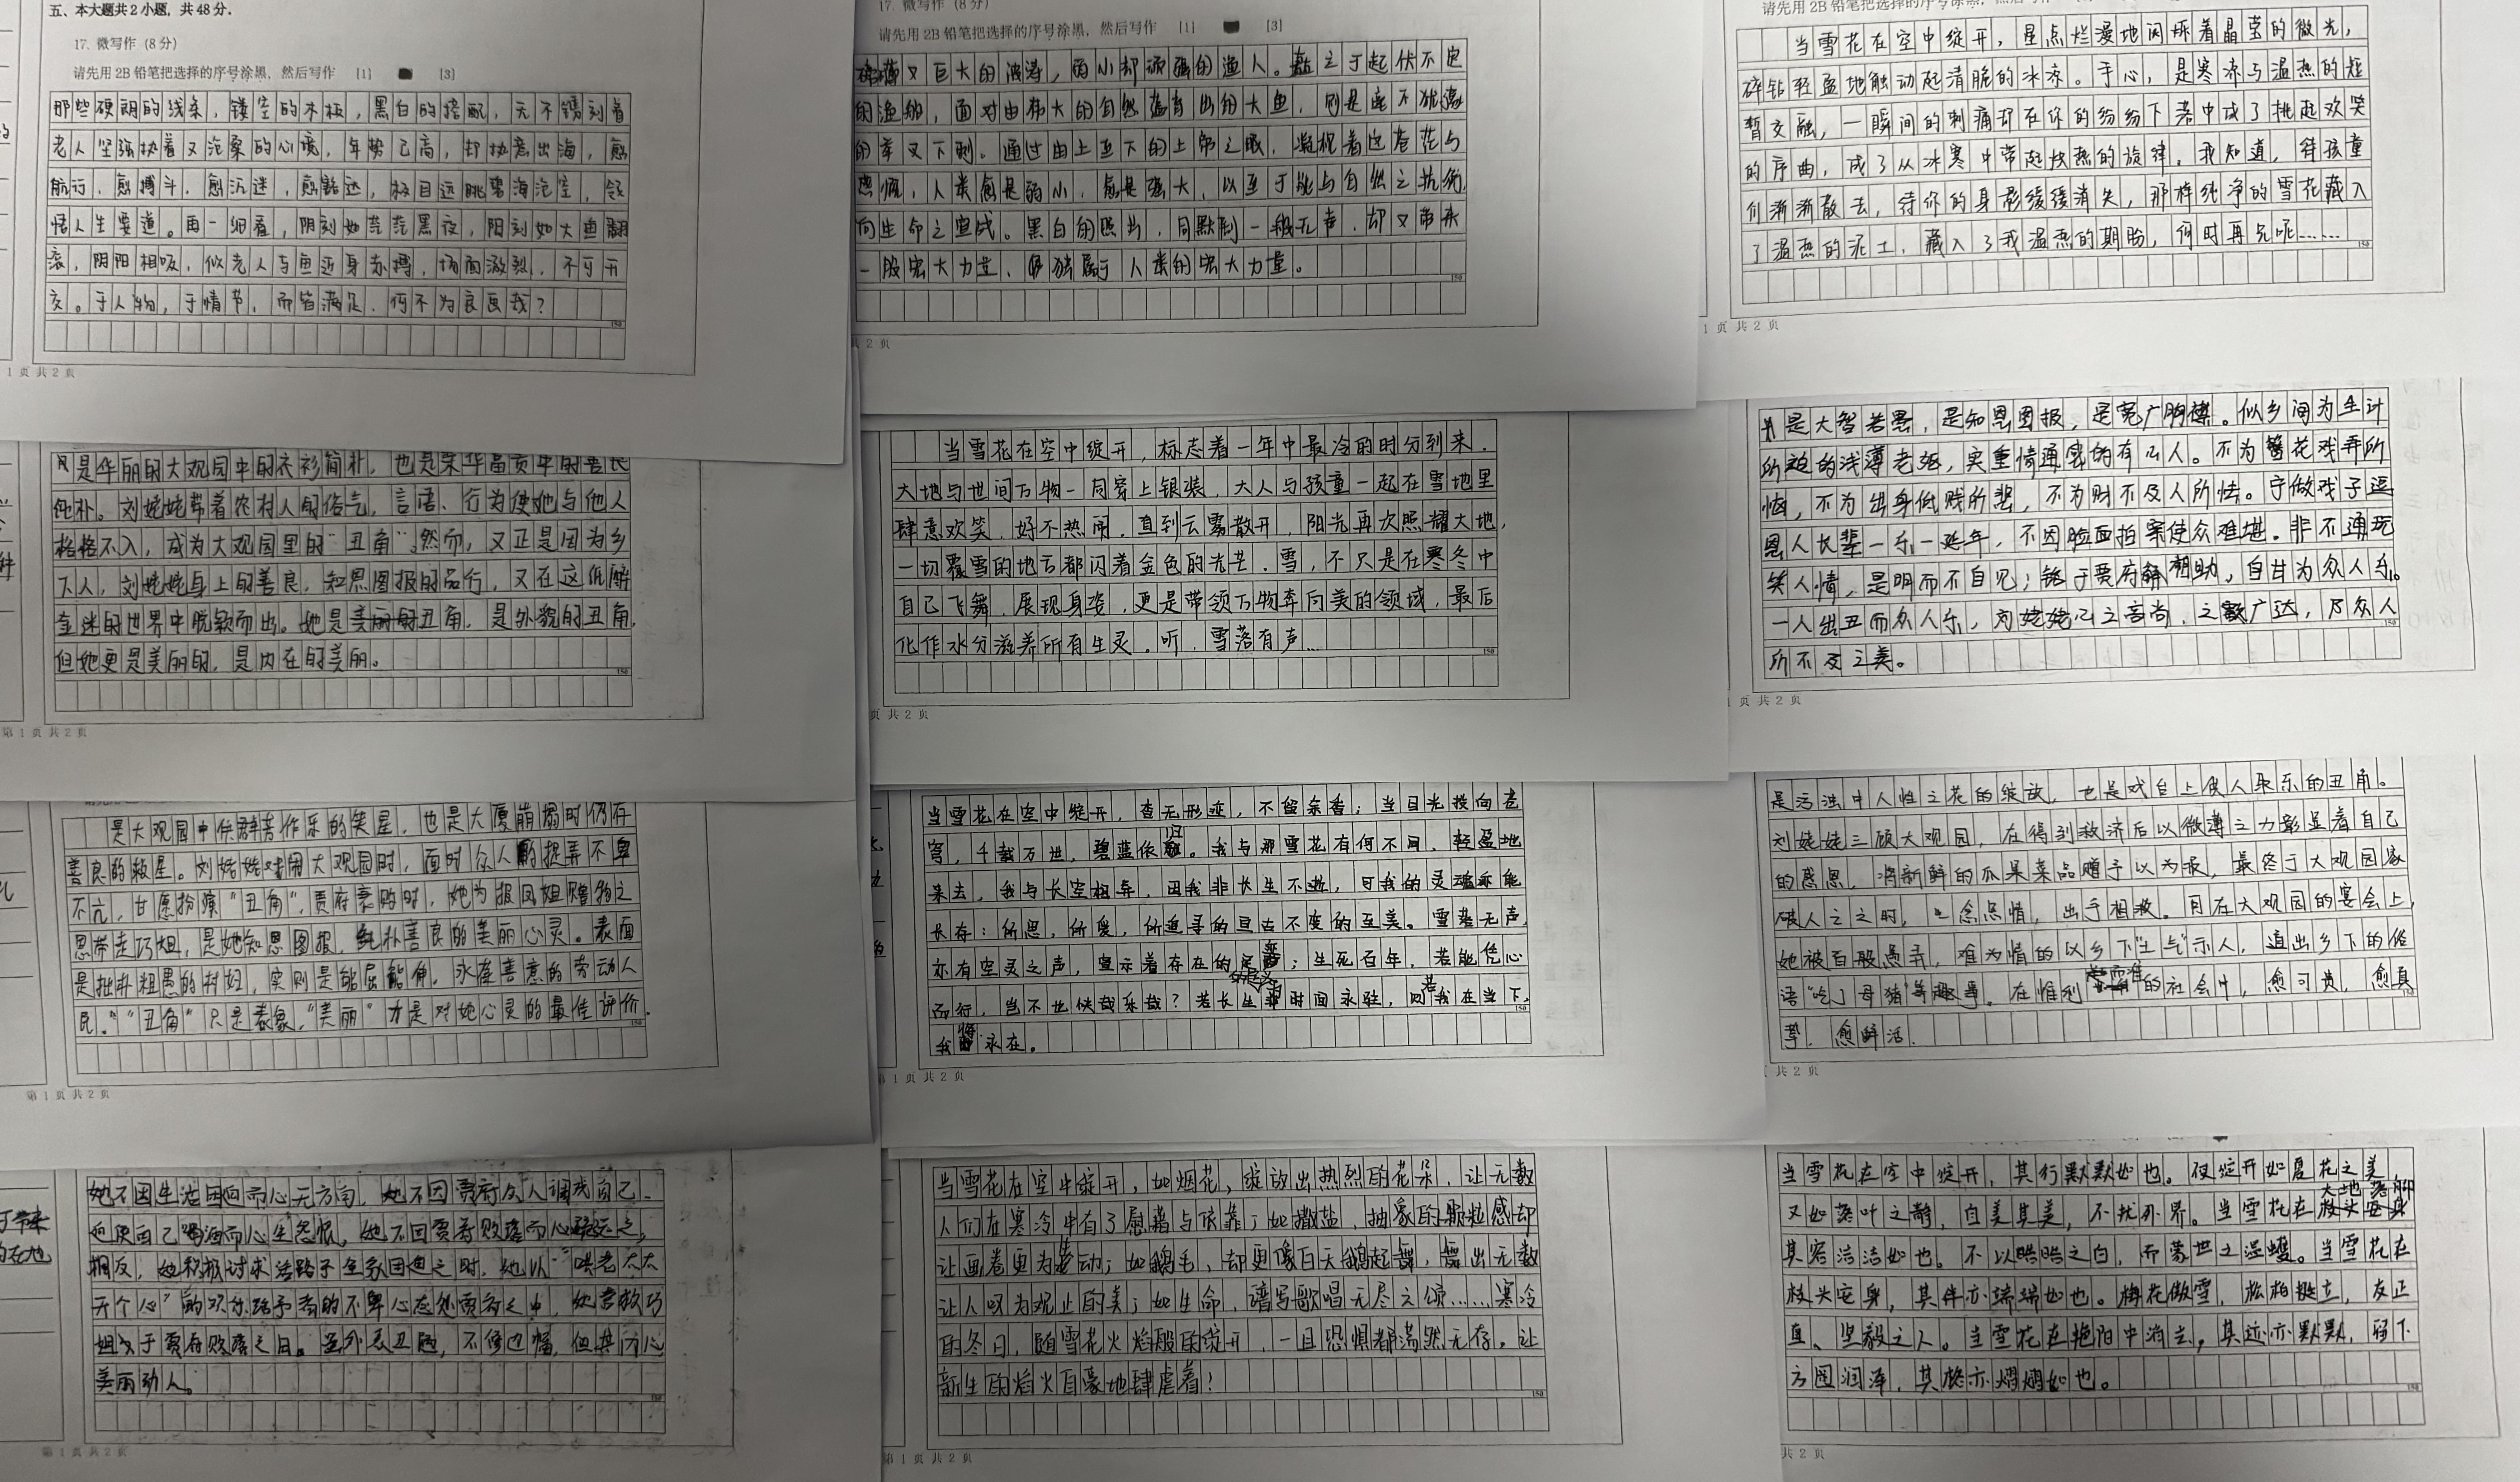 五、本大题共2小题，共48分．
17. 微写作（8分）
请先用2B铅笔把选择的序号涂黑，然后写作 [1] [3]
那些硬朗的线条，镂空的木板，黑白的搭配，无不镌刻着
老人坚强执着又沧桑的心境，年势已高，却执意出海，愈
航行，愈搏斗，愈沉迷，愈豁达，极目远眺碧海沧空，领
悟人生要道。再一细看，阴刻如茫茫黑夜，阳刻如大鱼翻
滚，阴阳相吸，似老人与鱼近身赤搏，场面激烈，不可开
交。于人物，于情节，而皆满足，何不为良画哉？
1 页 共 2 页
凤是华丽的大观园中的衣衫简朴，也是荣华富贵中的善良
纯朴。刘姥姥带着农村人的俗气，言语、行为使她与他人
格格不入，成为大观园里的“丑角”。然而，又正是因为乡
下人，刘姥姥身上的善良，知恩图报的品行，又在这纸醉
金迷的世界中脱颖而出。她是丑角，是外貌的丑角，
但她更是美丽的，是内在的美丽。
第 1 页 共 2 页
是大观园中供群芳作乐的笑星，也是大厦崩塌时仍存
善良的救星。刘姥姥闹大观园时，面对众人的捉弄不卑
不亢，甘愿扮演“丑角”，贾府衰败时，她为报凤姐赠物之
恩带走巧姐，是她知恩图报，纯朴善良的美丽心灵。表面
是拙朴粗愚的村妇，实则是能屈能伸，永存善意的劳动人
民。“丑角”只是表象，“美丽”才是对她心灵的最佳评价。
第 1 页 共 2 页
她不因生活困囿而心无方向，她不因贾府众人调戏自己、
迫使自己喝酒而心生怨恨，她不因贾府败落而心疏远之，
相反，她积极讨求活路于全家困迫之时，她以“哄老太太
开个心”的欢乐给予者的不卑心态处贾府之中，她营救巧
姐于贾府败落之日。虽外表丑陋，不修边幅，但其内心
美丽动人。
第 1 页 共 2 页
17. 微写作（8分）
请先用2B铅笔把选择的序号涂黑，然后写作 [1] [3]
又巨大的波涛，弱小却顽强的渔人。立于起伏不定
的渔船，面对由伟大的自然蕴育出的大鱼，则是毫不犹豫
的举叉下刺。通过由上至下的上帝之眼，凝视着这苍茫与
，人类愈是弱小，愈是强大，以至于能与自然之抗衡，
向生命之宣战。黑白的照片，同默剧一般无声，却又带来
一股宏大力量，独属于人类的宏大力量。
2 页
当雪花在空中绽开，标志着一年中最冷的时分到来．
大地与世间万物一同穿上银装，大人与孩童一起在雪地里
肆意欢笑，好不热闹．直到云雾散开，阳光再次照耀大地，
一切覆雪的地方都闪着金色的光芒．雪，不只是在寒冬中
自己飞舞，展现身姿，更是带领万物奔向美的领域，最后
化作水分滋养所有生灵．听，雪落有声…
页 共 2 页
当雪花在空中绽开，杳无形迹，不留余香；当目光投向苍
穹，千载万世，碧蓝依旧。我与那雪花有何不同，轻盈地
来去，我与长空相弃，因我非长生不逝，可我的灵魂亦能
长存：所思，所爱，所追寻的亘古不变的至美。雪落无声，
亦有空灵之声，宣示着存在的；生死百年，若能凭心
而行，岂不也快哉乐哉？若长生时间永驻，若我在当下，
我将永在。
1 页 共 2 页
当雪花在空中绽开，如烟花，绽放出热烈的花朵，让无数
人们在寒冷中有了慰藉与依靠；如撒盐，抽象的颗粒感却
让画卷更为生动；如鹅毛，却更像白天鹅起舞，舞出无数
让人叹为观止的美；如生命，谱写歌唱无尽之颂……寒冷
的冬日，随雪花火焰般的绽开，一旦恐惧都荡然无存，让
新生的焰火自豪地肆虐着！
第 1 页 共 2 页
请先用2B铅笔把选择的序号涂黑，然后写作
当雪花在空中绽开，星点烂漫地闪烁着晶莹的微光，
碎钻轻盈地触动起清脆的冰凉。于心，是寒凉与温热的短
暂交融，一瞬间的刺痛却在你的纷纷下落中成了挑起欢笑
的序曲，成了从冰寒中带起炽热的旋律。我知道，待孩童
们渐渐散去，待你的身影缓缓消失，那样纯净的雪花藏入
了温热的泥土，藏入了我温热的期盼，何时再见呢……
1 页 共 2 页
是大智若愚，是知恩图报，是宽广胸襟。似乡间为生计
所迫的浅薄老妪，实重情通窍的有心人。不为簪花戏弄所
恼，不为出身低贱所悲，不为财不及人所怯。宁做戏子逗
恩人长辈一乐一延年，不因脸面拍案使众难堪。非不通玩
笑人情，是明而不自见；铭于贾府相助，自甘为众人乐。
一人出丑而众人乐，刘姥姥心之高尚，之广达，乃众人
所不及之美。
页 共 2 页
是污浊中人性之花的绽放，也是戏台上供人取乐的丑角。
刘姥姥三顾大观园，在得到救济后以微薄之力彰显着自己
的感恩，将新鲜的瓜果菜品赠予以为报，最终于大观园家
破人亡之时，心念恩情，出手相救。而在大观园的宴会上，
她被百般愚弄，难为情的以乡下“土气”示人，道出乡下的俗
语“吃了母猪”等趣事。在惟利是准的社会中，愈可贵，愈真
挚，愈鲜活．
页 共 2 页
当雪花在空中绽开，其行默默如也。仅绽开如夏花之美，
又如落叶之静，自美其美，不扰外界。当雪花在大地落脚
其容洁洁如也。不以皓皓之白，而蒙世之湿蠖。当雪花在
枝头安身，其伴亦端端如也。梅花傲雪，松柏挺立，友正
直、坚毅之人。当雪花在艳阳中消去，其迹亦默默，留下
方圆润泽，其终亦熠熠如也。
共 2 页